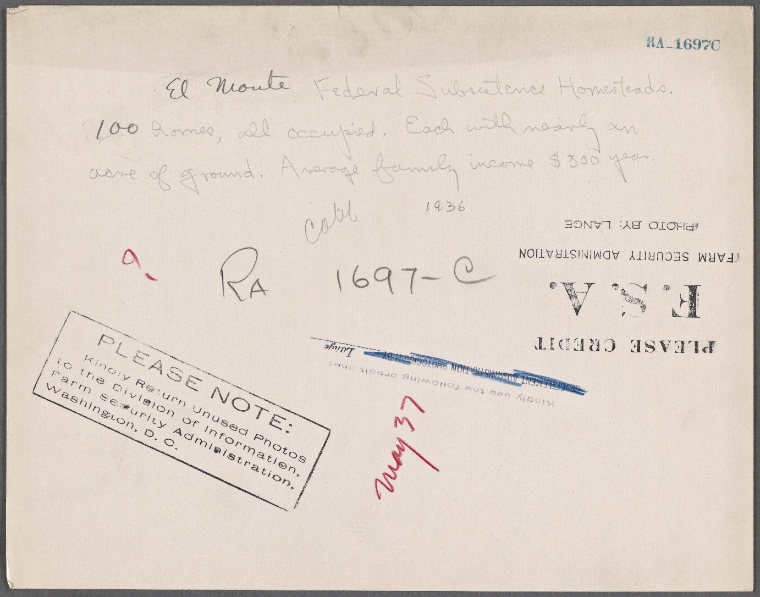 RA-1697C
El Monte Federal Subsistence Homesteads.
100 homes, all occupied. Each with nearly an
acre of ground. Average family income $800 year.
1936
RA 1697-C
PLEASE CREDIT
F. S. A.
FARM SECURITY ADMINISTRATION
PHOTO BY: LANGE
Kindly use the following credit line:
Lange
PLEASE NOTE:
Kindly Return Unused Photos
to the Division of Information,
Farm Security Administration.
Washington, D. C.
May 37